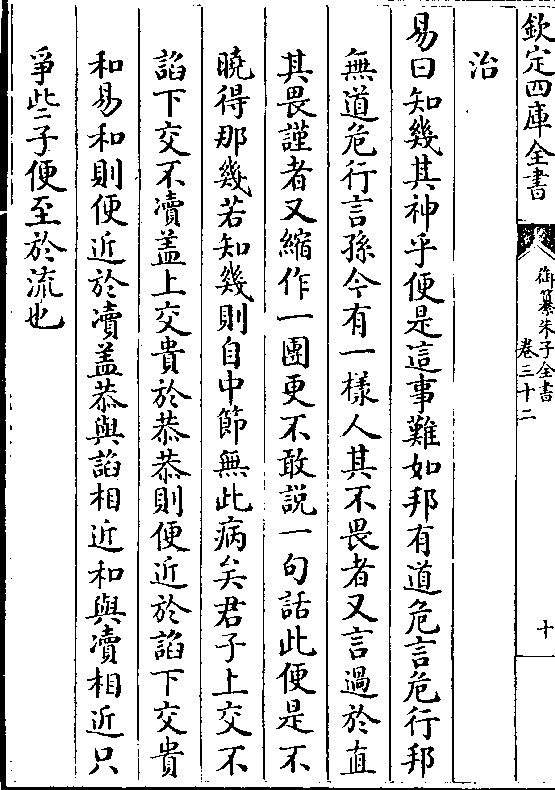 欽定四庫全書
御纂朱子全書
卷三十二
十
治
易曰知幾其神乎便是這事難如邦有道危言危行邦
無道危行言孫今有一樣人其不畏者又言過於直
其畏謹者又縮作一團更不敢説一句話此便是不
曉得那幾若知幾則自中節無此病矣君子上交不
諂下交不瀆盖上交貴於恭恭則便近於諂下交貴
和易和則便近於瀆盖恭與諂相近和與瀆相近只
爭些子便至於流也